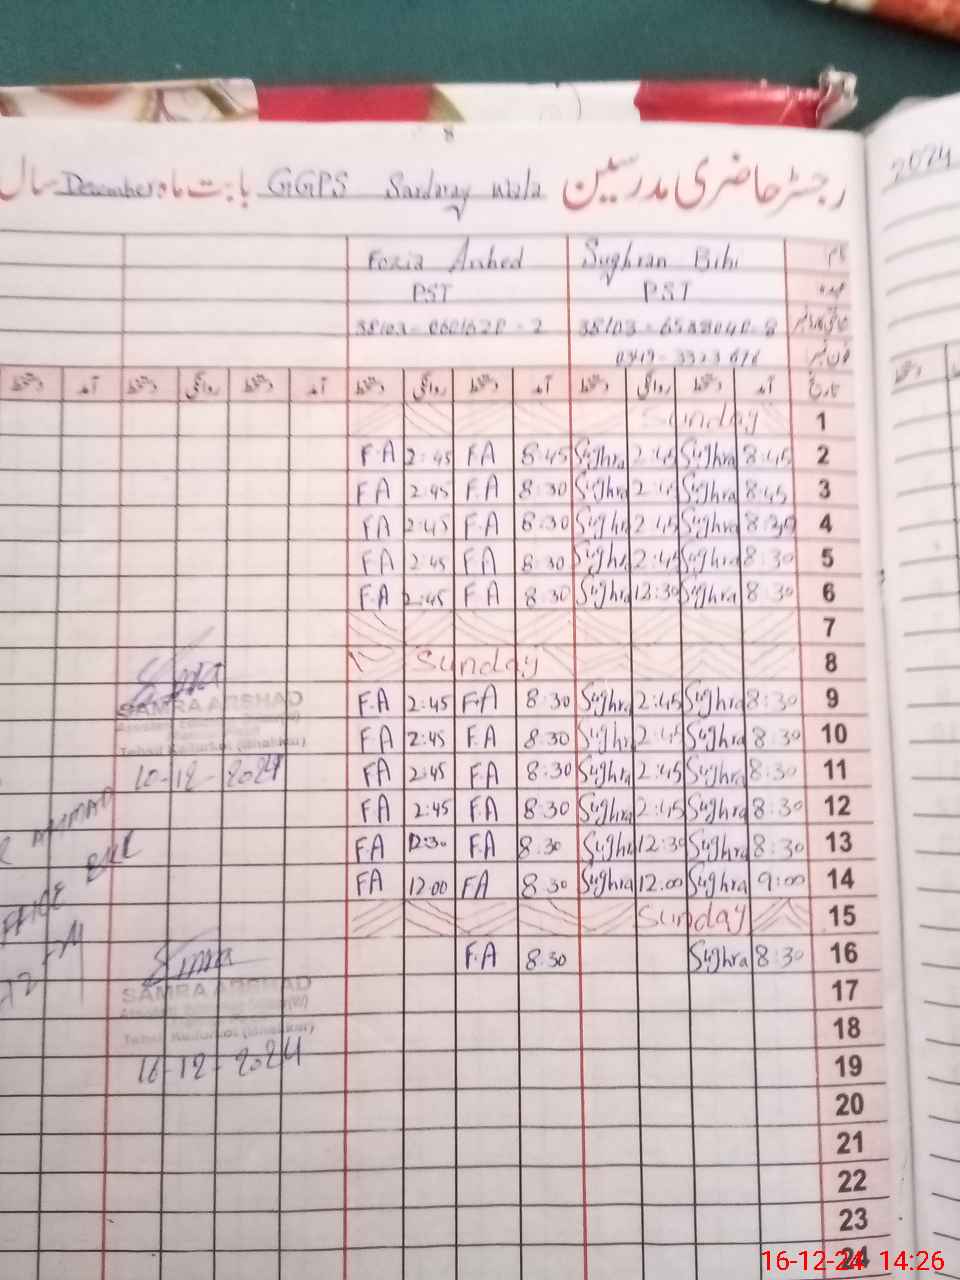 8
رجسٹر حاضری مدرسین GGPS Sandaray Wala بابت ماہ December سال
2024
نام Sughran Bibi Fozia Arshed
عہدہ PST PST
فون نمبر
تاریخ آمد دستخط روانگی دستخط آمد دستخط روانگی دستخط آمد دستخط روانگی دستخط آمد دستخط
1 Sunday
2 8:45 Sughra 2:45 Sughra 8:45 FA 2:45 F.A
3 8:45 Sughra Sughra 8:30 F.A 2:45 FA
4 8:30 Sughra 2:45 Sughra 8:30 F.A 2:45 FA
5 8:30 Sughra 2:45 Sughra 8:30 F.A 2:45 FA
6 8:30 Sughra 12:30 Sughra 8:30 F.A 2:45 F.A
7
8 Sunday
9 8:30 Sughra 2:45 Sughra 8:30 F.A 2:45 F.A
10 8:30 Sughra 2:45 Sughra 8:30 F.A 2:45 FA
11 8:30 Sughra 2:45 Sughra 8:30 F.A 2:45 FA
12 8:30 Sughra 2:45 Sughra 8:30 FA 2:45 FA
13 8:30 Sughra 12:30 Sughra 8.30 F.A 12:30 FA
14 9:00 Sughra 12.00 Sughra 8.30 FA 12.00 FA
15 Sunday
16 8:30 Sughra 8:30 F.A
17
18
19
20
21
22
23
24
SAMRA ARSHAD
Tehsil Kallurkot (Bhakkar)
10-12-2024
AHMAD
OFFICE
SAMRA ARSHAD
Tehsil Kallurkot (Bhakkar)
16-12-2024
16-12-24 14:26